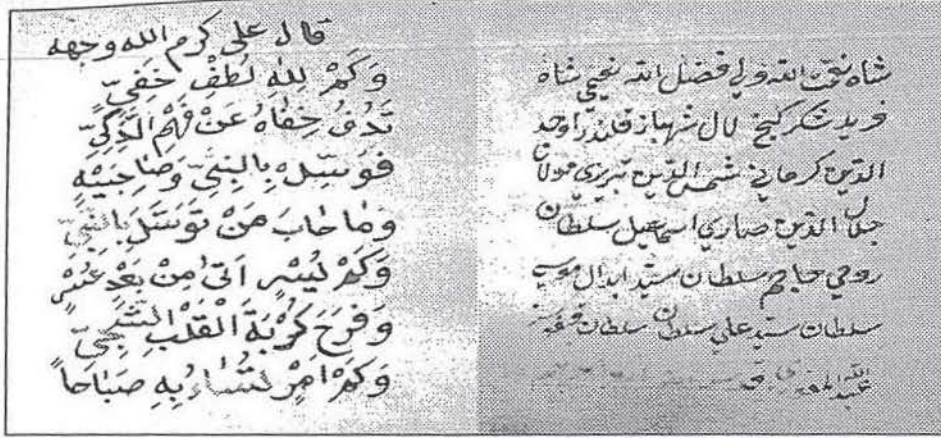 شاه نعمت الله ولي فضل الله نعيمي شاه
فريد شكر كنج لال شهباز قلندر اوحد
الدين كرماني شمس الدين تبريزى مولانا
جلال الدين صماري اسماعيل سلطان
روحي سلطان سيد ابدال
سلطان سيد علي سلطان سلطان
قال على كرم الله وجهه
وَكَمْ لِلهِ لُطْفٍ خَفِيٍّ
تَدُقُ خِفَاهُ عَنْ فَهْمِ الذَّكِيِّ
فَوَسِّلْ بِالنَّبِيِّ وَصَاحِبَيْهِ
وَمَا خَابَ مَنْ تَوَسَّلَ بِالنَّبِيِّ
وَكَمْ يُسْرٍ اَتىٰ مِنْ بَعْدِ عُسْرٍ
وَفَرَجَ كُرْبَةَ الْقَلْبِ الشَّجِيِّ
وَكَمْ اَمْرٍ تُسَاءُ بِهِ صَبَاحاً